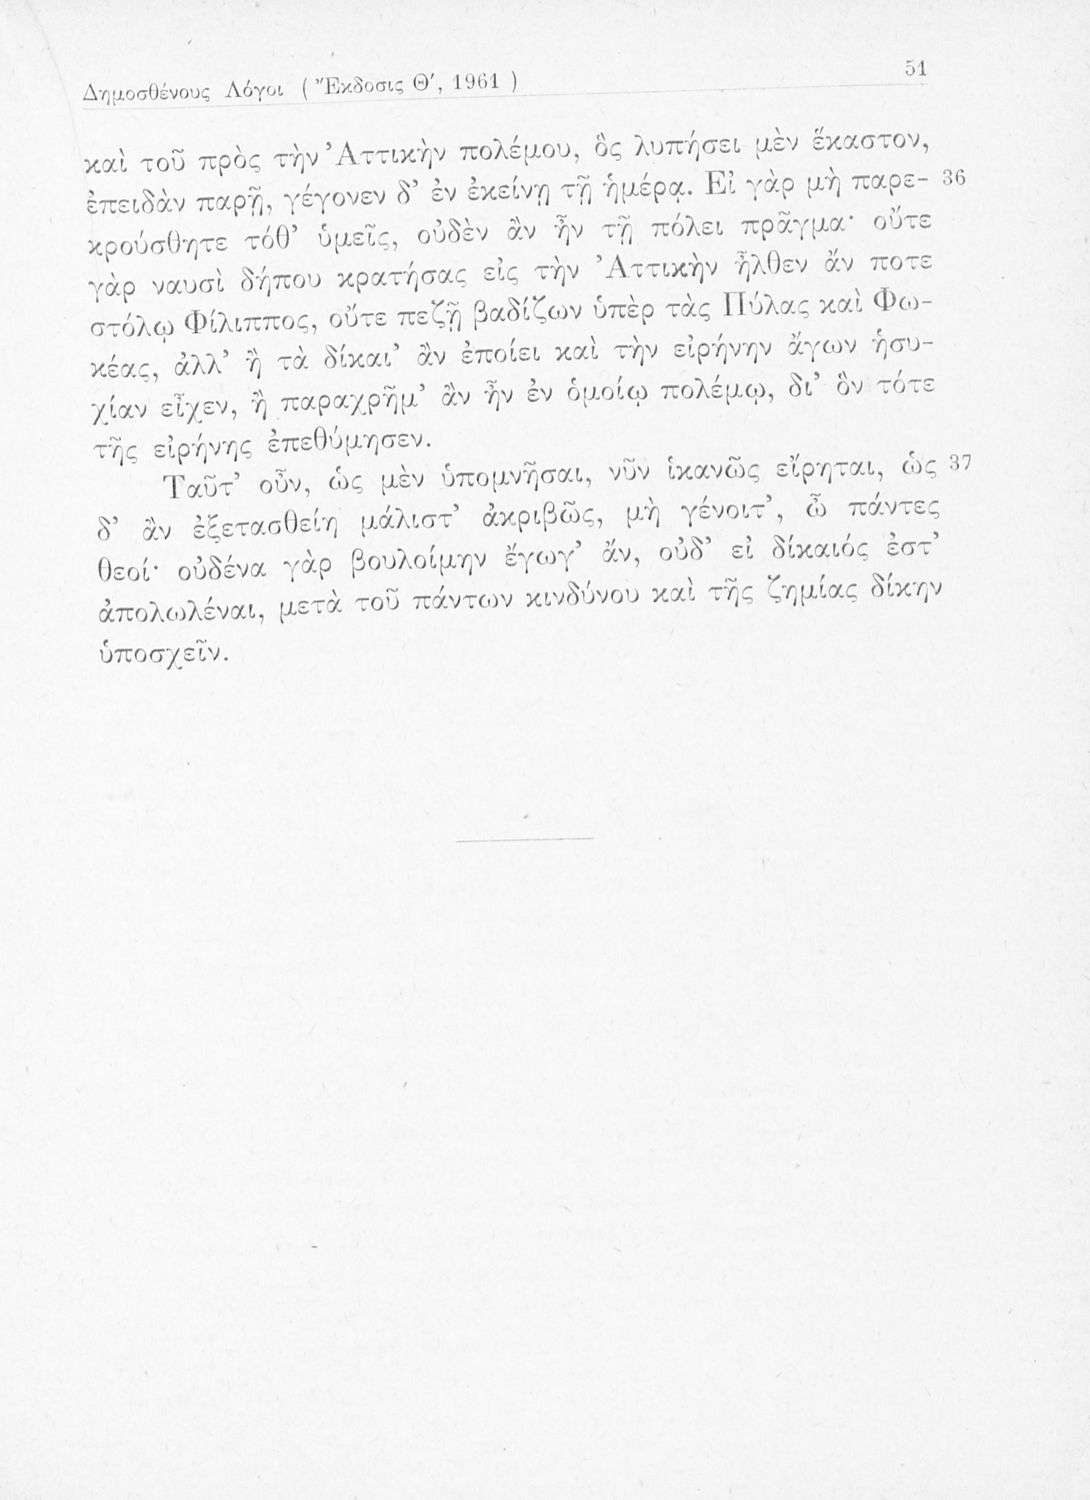 Δημοσθένους Λόγοι ( Ἔκδοσις Θ΄, 1961 )
51
καὶ τοῦ πρὸς τὴν Ἀττικὴν πολέμου, ὃς λυπήσει μὲν ἕκαστον,
ἐπειδὰν παρῇ, γέγονεν δ’ ἐν ἐκείνῃ τῇ ἡμέρᾳ. Εἰ γὰρ μὴ παρε- 36
κρούσθητε τόθ’ ὑμεῖς, οὐδὲν ἂν ἦν τῇ πόλει πρᾶγμα· οὔτε
γὰρ ναυσὶ δήπου κρατήσας εἰς τὴν Ἀττικὴν ἦλθεν ἄν ποτε
στόλῳ Φίλιππος, οὔτε πεζῇ βαδίζων ὑπὲρ τὰς Πύλας καὶ Φω-
κέας, ἀλλ’ ἢ τὰ δίκαι’ ἂν ἐποίει καὶ τὴν εἰρήνην ἄγων ἡσυ-
χίαν εἶχεν, ἢ παραχρῆμ’ ἂν ἦν ἐν ὁμοίῳ πολέμῳ, δι’ ὃν τότε
τῆς εἰρήνης ἐπεθύμησεν.
Ταῦτ’ οὖν, ὡς μὲν ὑπομνῆσαι, νῦν ἱκανῶς εἴρηται, ὡς 37
δ’ ἂν ἐξετασθείη μάλιστ’ ἀκριβῶς, μὴ γένοιτ’, ὦ πάντες
θεοί· οὐδένα γὰρ βουλοίμην ἔγωγ’ ἄν, οὐδ’ εἰ δίκαιός ἐστ’
ἀπολωλέναι, μετὰ τοῦ πάντων κινδύνου καὶ τῆς ζημίας δίκην
ὑποσχεῖν.